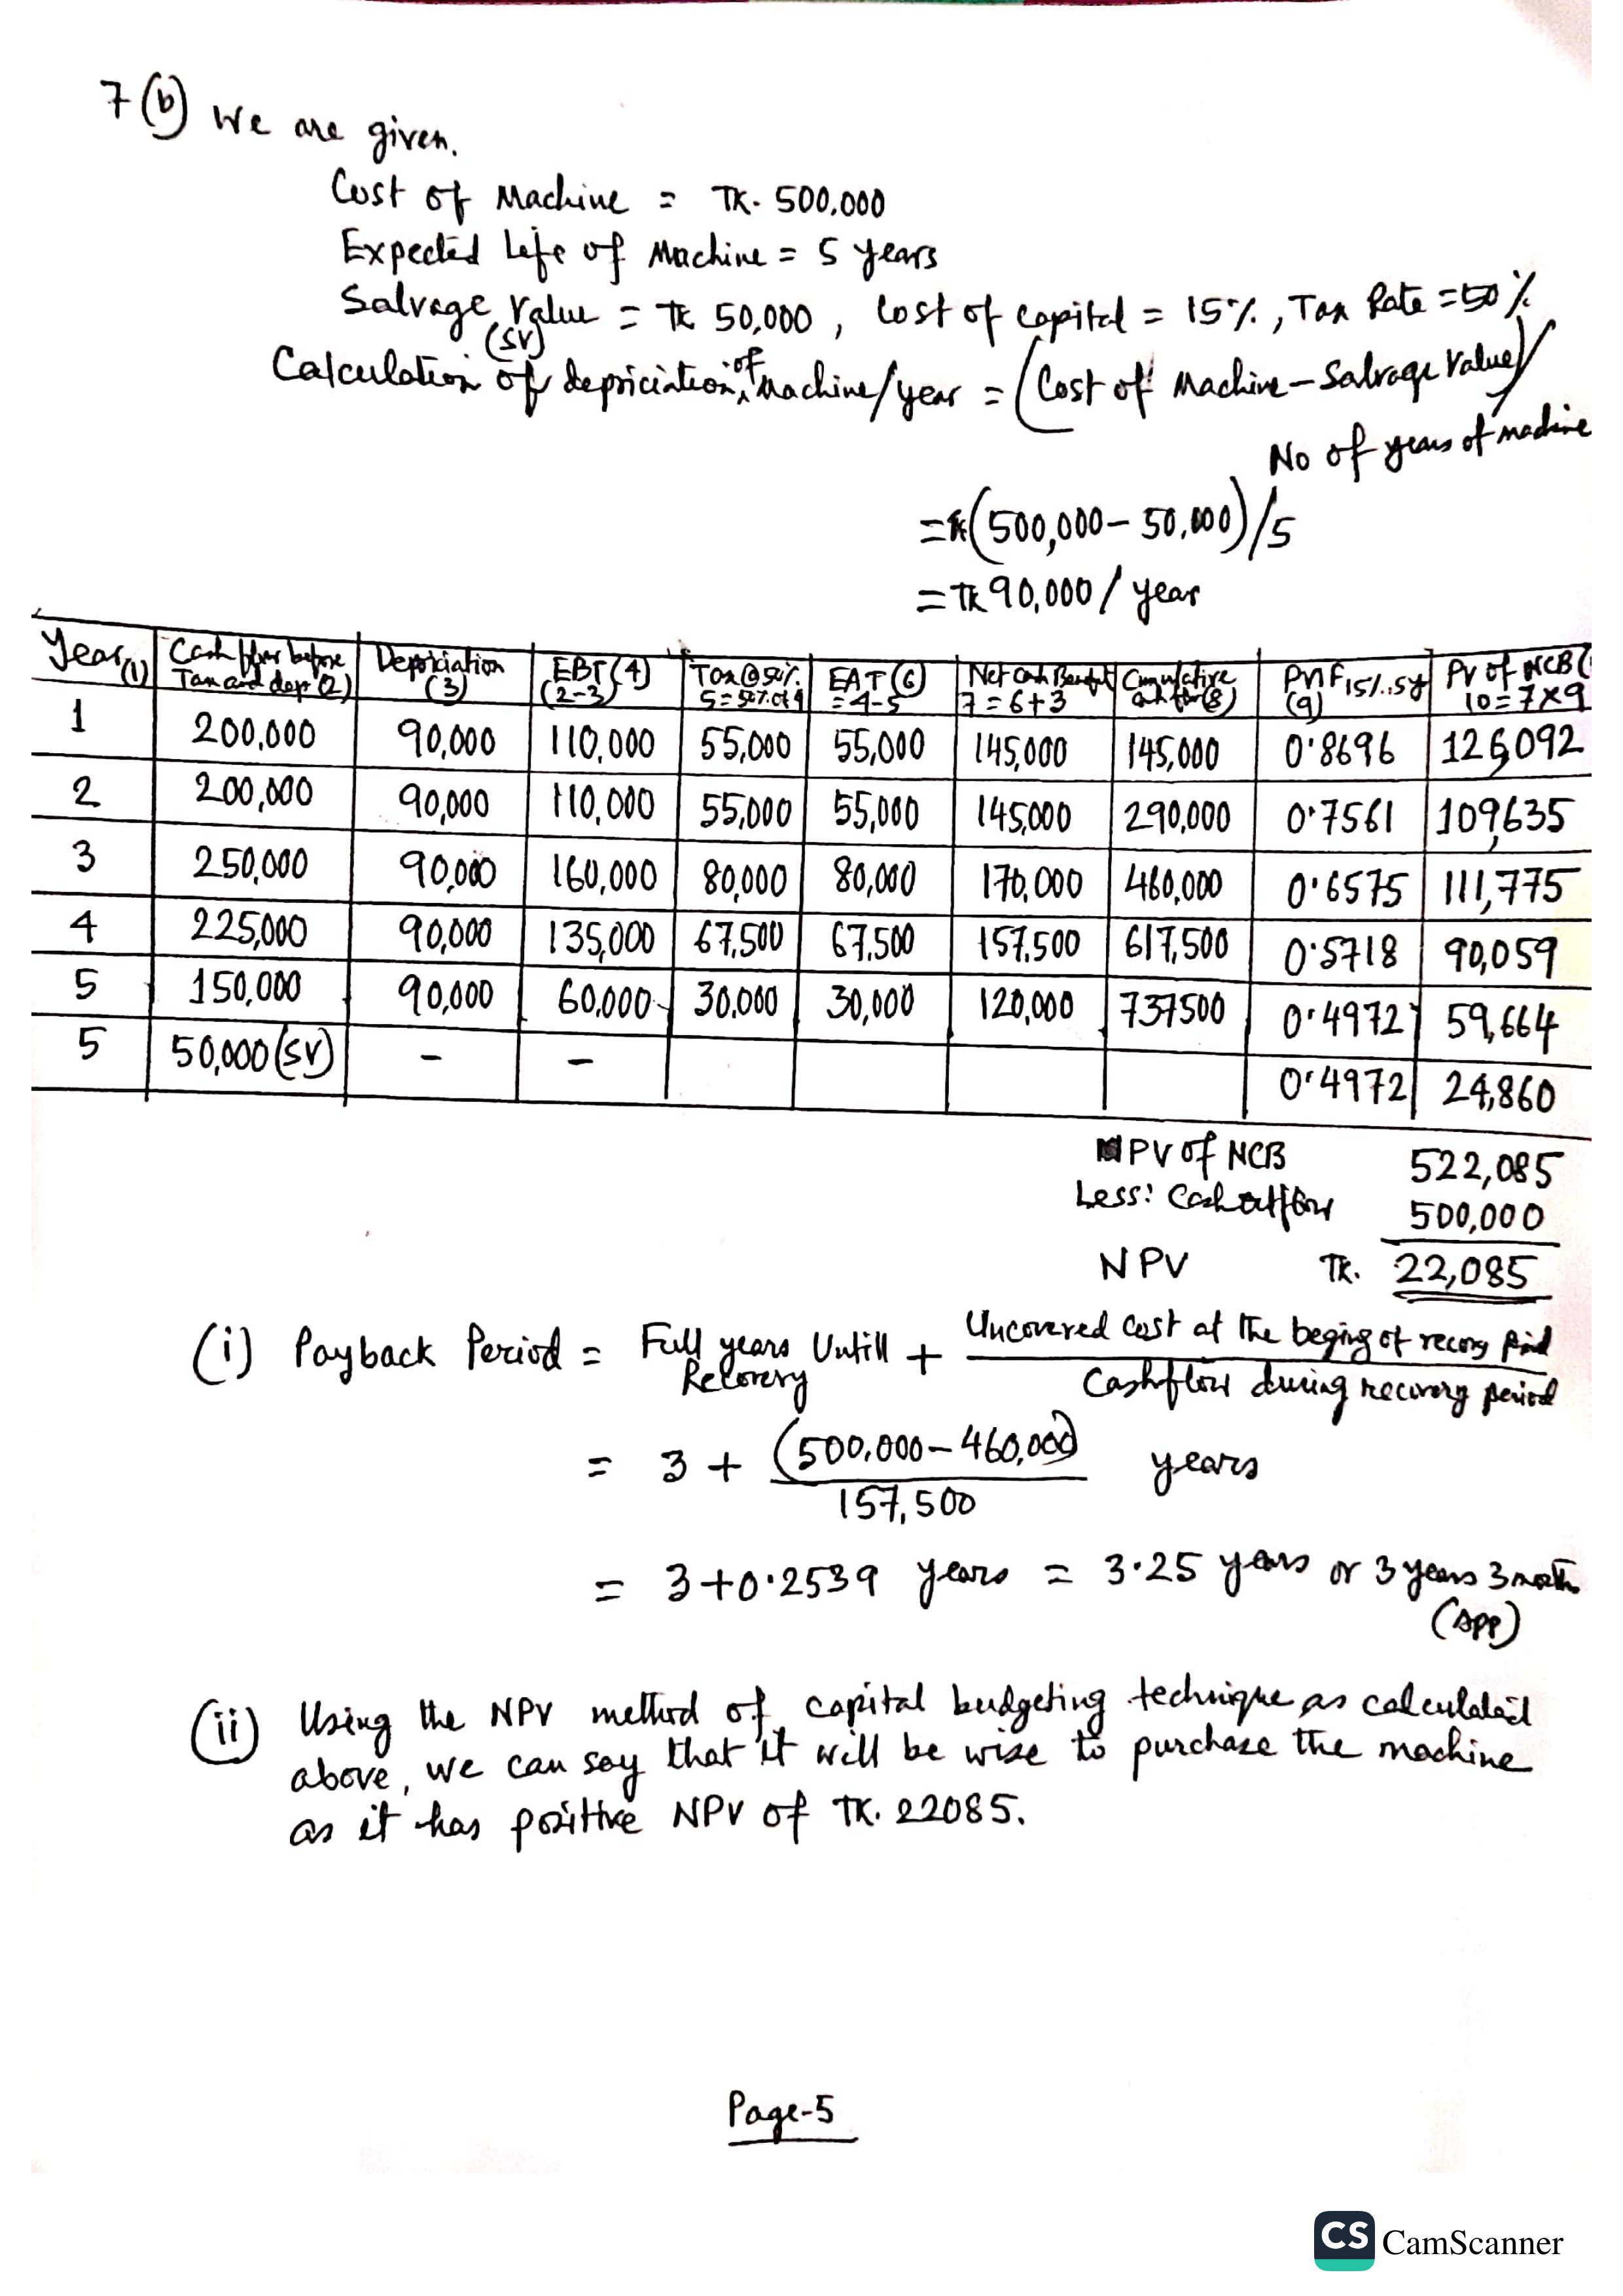 7(b) We are given.
Cost of Machine = TK. 500,000
Expected Life of Machine = 5 years
Salvage Value (SV) = TK 50,000, Cost of Capital = 15%, Tax Rate = 50%
Calculation of depriciation of Machine/year = (Cost of Machine - Salvage Value)/
No of years of machine
= TK (500,000 - 50,000)/5
= TK 90,000/year
Year (1) | Cash flow before Tax and dep. (2) | Depriciation (3) | EBT (4) (2-3) | Tax @ 50% 5 = 50% of 4 | EAT (6) = 4-5 | Net Cash Benefit 7 = 6+3 | Cumulative cash flow (8) | PVIF 15%, 5y (9) | PV of NCB 10 = 7×9
1 | 200,000 | 90,000 | 110,000 | 55,000 | 55,000 | 145,000 | 145,000 | 0.8696 | 126,092
2 | 200,000 | 90,000 | 110,000 | 55,000 | 55,000 | 145,000 | 290,000 | 0.7561 | 109,635
3 | 250,000 | 90,000 | 160,000 | 80,000 | 80,000 | 170,000 | 460,000 | 0.6575 | 111,775
4 | 225,000 | 90,000 | 135,000 | 67,500 | 67,500 | 157,500 | 617,500 | 0.5718 | 90,059
5 | 150,000 | 90,000 | 60,000 | 30,000 | 30,000 | 120,000 | 737500 | 0.4972 | 59,664
5 | 50,000 (SV) | - | - | 0.4972 | 24,860
PV of NCB 522,085
Less: Cash outflow 500,000
NPV TK. 22,085
(i) Payback Period = Full years Untill Recovery + Uncovered Cost at the beging of recovry Priod / Cashflow during recovery period
= 3 + (500,000 - 460,000) / 157,500 years
= 3 + 0.2539 years = 3.25 years or 3 years 3 months
(APP)
(ii) Using the NPV method of capital budgeting technique as calculated
above, we can say that it will be wise to purchase the machine
as it has positive NPV of TK. 22085.
Page-5
CS CamScanner